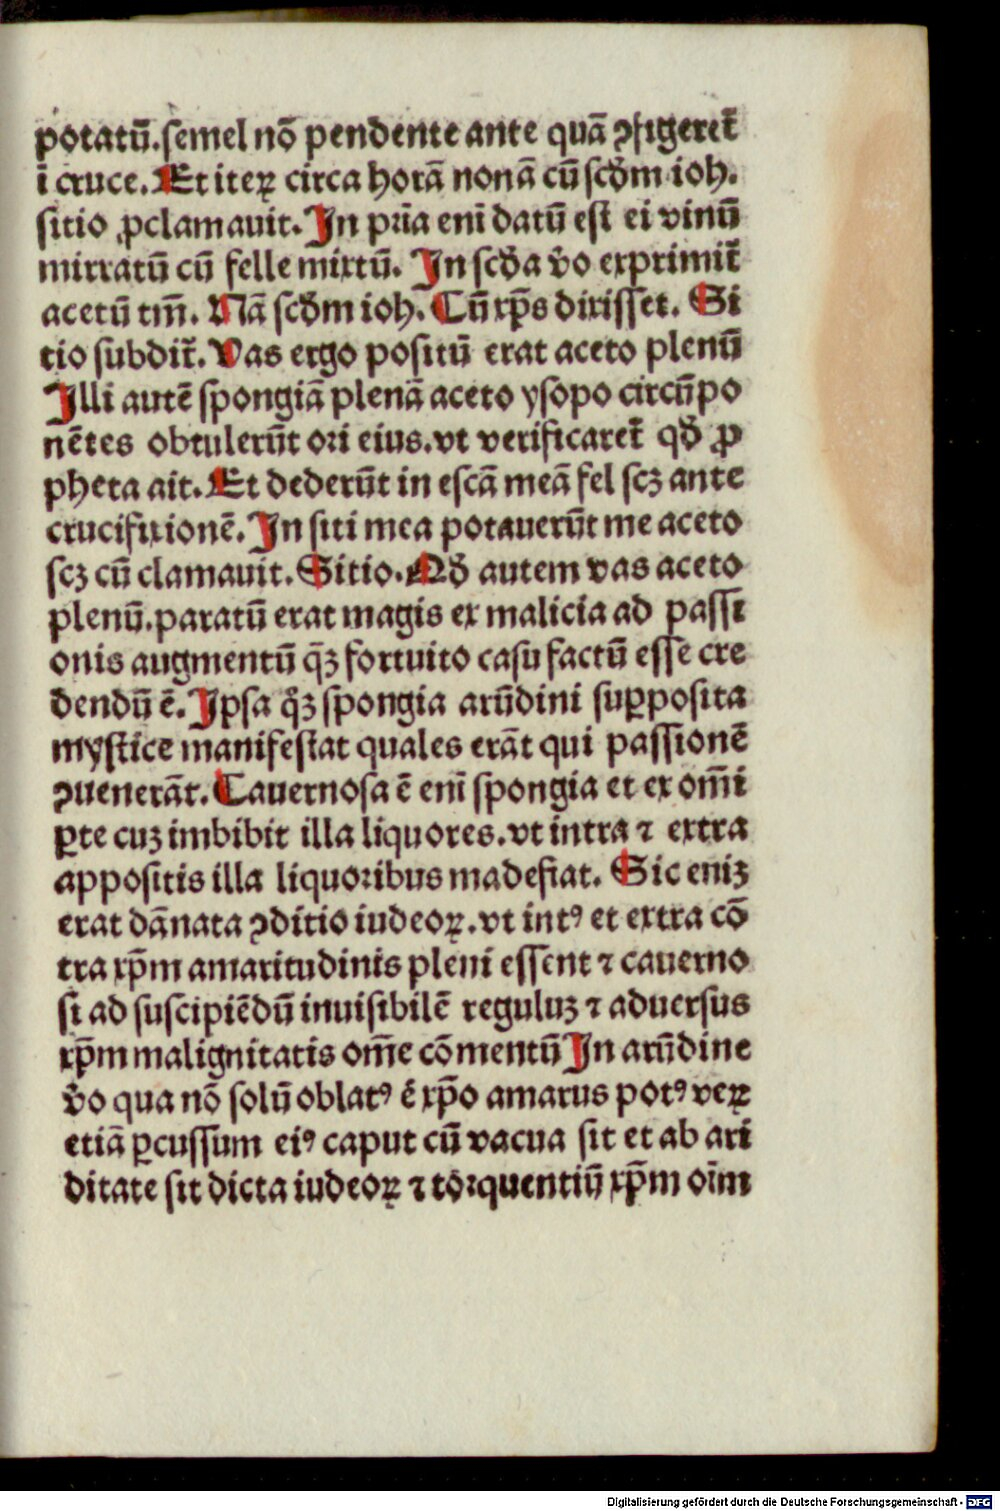 potatū.semel nō pendente ante quā ꝯfigeret᷑
ī cruce. Et iteꝝ circa horā nonā cū scd̄m ioh.
sitio ꝓclamauit. In pria eni datū est ei vinū
mirratū cū felle mixtū. In scd̄a v̄o exprimit᷑
acetū tm̄. Nā scd̄m ioh. Cū xp̄s dixisset. Si
tio subdit᷑. Vas ergo positū erat aceto plenū
Illi autē spongiā plenā aceto ysopo circūpo
nētes obtulerūt ori eius. vt verificaret᷑ qd̄ ꝓ
pheta ait. Et dederūt in escā meā fel scꝫ ante
crucifixionē. In siti mea potauerūt me aceto
scꝫ cū clamauit. Sitio. Qd̄ autem vas aceto
plenū.paratū erat magis ex malicia ad passi
onis augmentū qꝫ fortuito casu factū esse cre
dendū ē. Ipsa qͦꝫ spongia arūdini suꝑposita
mystice manifestat quales erāt qui passionē
ꝯuenerāt. Cauernosa ē eni spongia et ex om̄i
ꝑte cuꝫ imbibit illa liquores. vt intra ⁊ extra
appositis illa liquoribus madefiat. Sic eniꝫ
erat dānata ꝯditio iudeoꝝ. vt intꝰ et extra cō
tra xp̄m amaritudinis pleni essent ⁊ cauerno
si ad suscipiēdū inuisibilē reguluꝫ ⁊ aduersus
xp̄m malignitatis om̄e cōmentū In arūdine
v̄o qua nō solū oblatꝰ ē xp̄o amarus potꝰ veꝝ
etiā ꝑcussum eiꝰ caput cū vacua sit et ab ari
ditate sit dicta iudeoꝝ ⁊ torquentiū xp̄m oīm
Digitalisierung gefördert durch die Deutsche Forschungsgemeinschaft - DFG